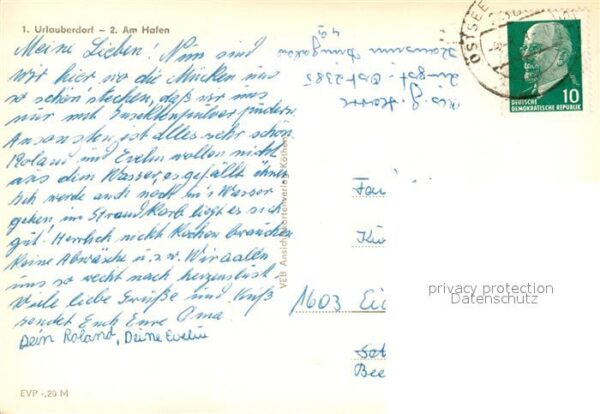 1. Urlauberdorf – 2. Am Hafen
Meine Lieben! Nun sind
wir hier wo die Mücken uns
so schön stechen, daß wir uns
nur mit Insektenpulver pudern.
Ansonsten ist alles sehr schön.
Roland und Evelin wollen nicht
aus dem Wasser, es gefällt ihnen
Ich werde auch noch in's Wasser
gehen im Strandkorb liegt es sich
gut! Herrlich nicht Kochen brauchen
keine Abwäsche u.s.w. Wir aalen
uns so recht nach herzenslust.
Viele liebe Grüße und Kuß
sendet Euch Eure Oma.
Dein Roland, Deine Evelin
EVP -,20 M
VEB Ansichtskartenverlag Köthen
Zingst - Ost 2385
OSTSEE
10
DEUTSCHE
DEMOKRATISCHE REPUBLIK
Fa
Ku
1603 Ei
Bee
privacy protection
Datenschutz